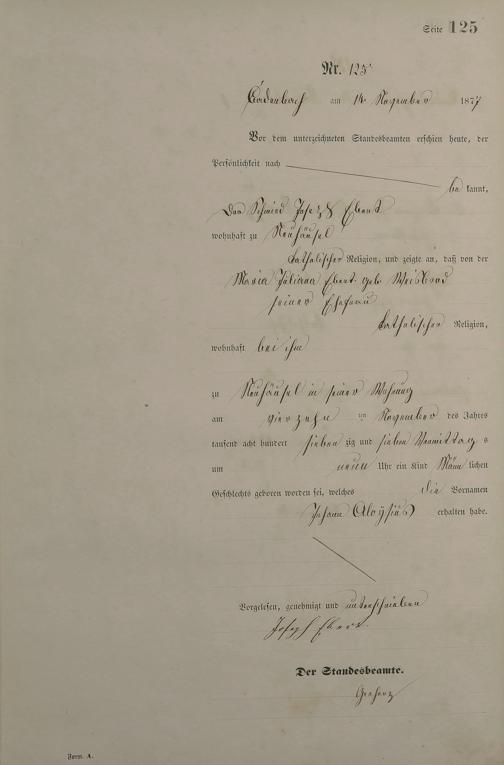 Seite 125
Nr. 125
Cadenbach am 14 November 1877
Vor dem unterzeichneten Standesbeamten erschien heute, der
Persönlichkeit nach
be kannt,
Der Schmied Joseph Ebert
wohnhaft zu Neuhäusel
katholischer Religion, und zeigte an, daß von der
Maria Juliana Ebert geb. Weisbrod
seiner Ehefrau
katholischer Religion,
wohnhaft bei ihm
zu Neuhäusel in seiner Wohnung
am vierzehn ten November des Jahres
tausend acht hundert sieben zig und sieben Vormittag s
um neun Uhr ein Kind Männ lichen
Geschlechts geboren worden sei, welches die Vornamen
Johann Aloysius erhalten habe.
Vorgelesen, genehmigt und unterschrieben
Joseph Ebert.
Der Standesbeamte.
Form. A.